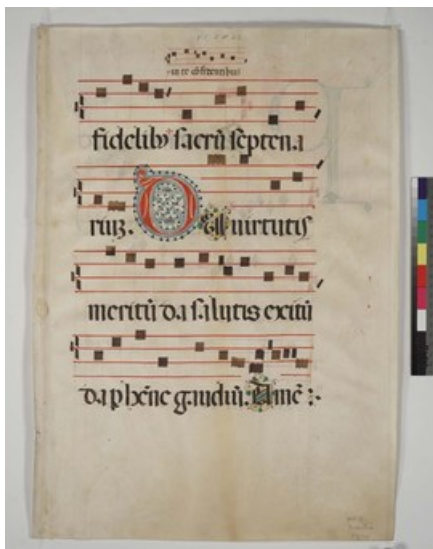 in te cōfidentibus
fidelibꝰ sacrū septena
riuʒ. Da uirtutis
meritū da salutis exitū
da phēne gaudiū: Amē :·